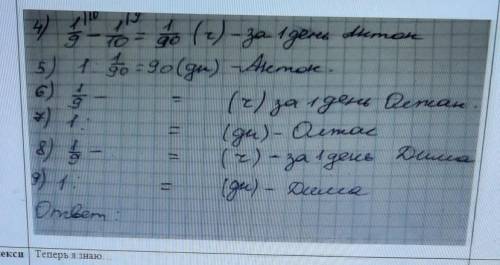 4) 1/9 |10 - 1/10 |9 = 1/90 (ч) - за 1 день Антон
5) 1 1/90 = 90 (дн) - Антон.
6) 1/9 - = (ч) за 1 день Олжан.
7) 1: = (дн) - Олжас
8) 1/9 - = (ч) - за 1 день Дима
9) 1: = (дн) - Дима
Ответ:
лекси Теперь я знаю.